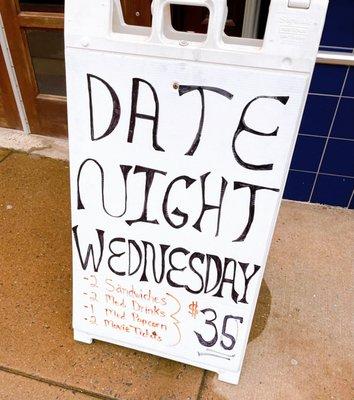 DATE
NIGHT
WEDNESDAY
-2 Sandwiches
-2 Med Drinks
-1 med Popcorn
-2 Movie Tickets
$35